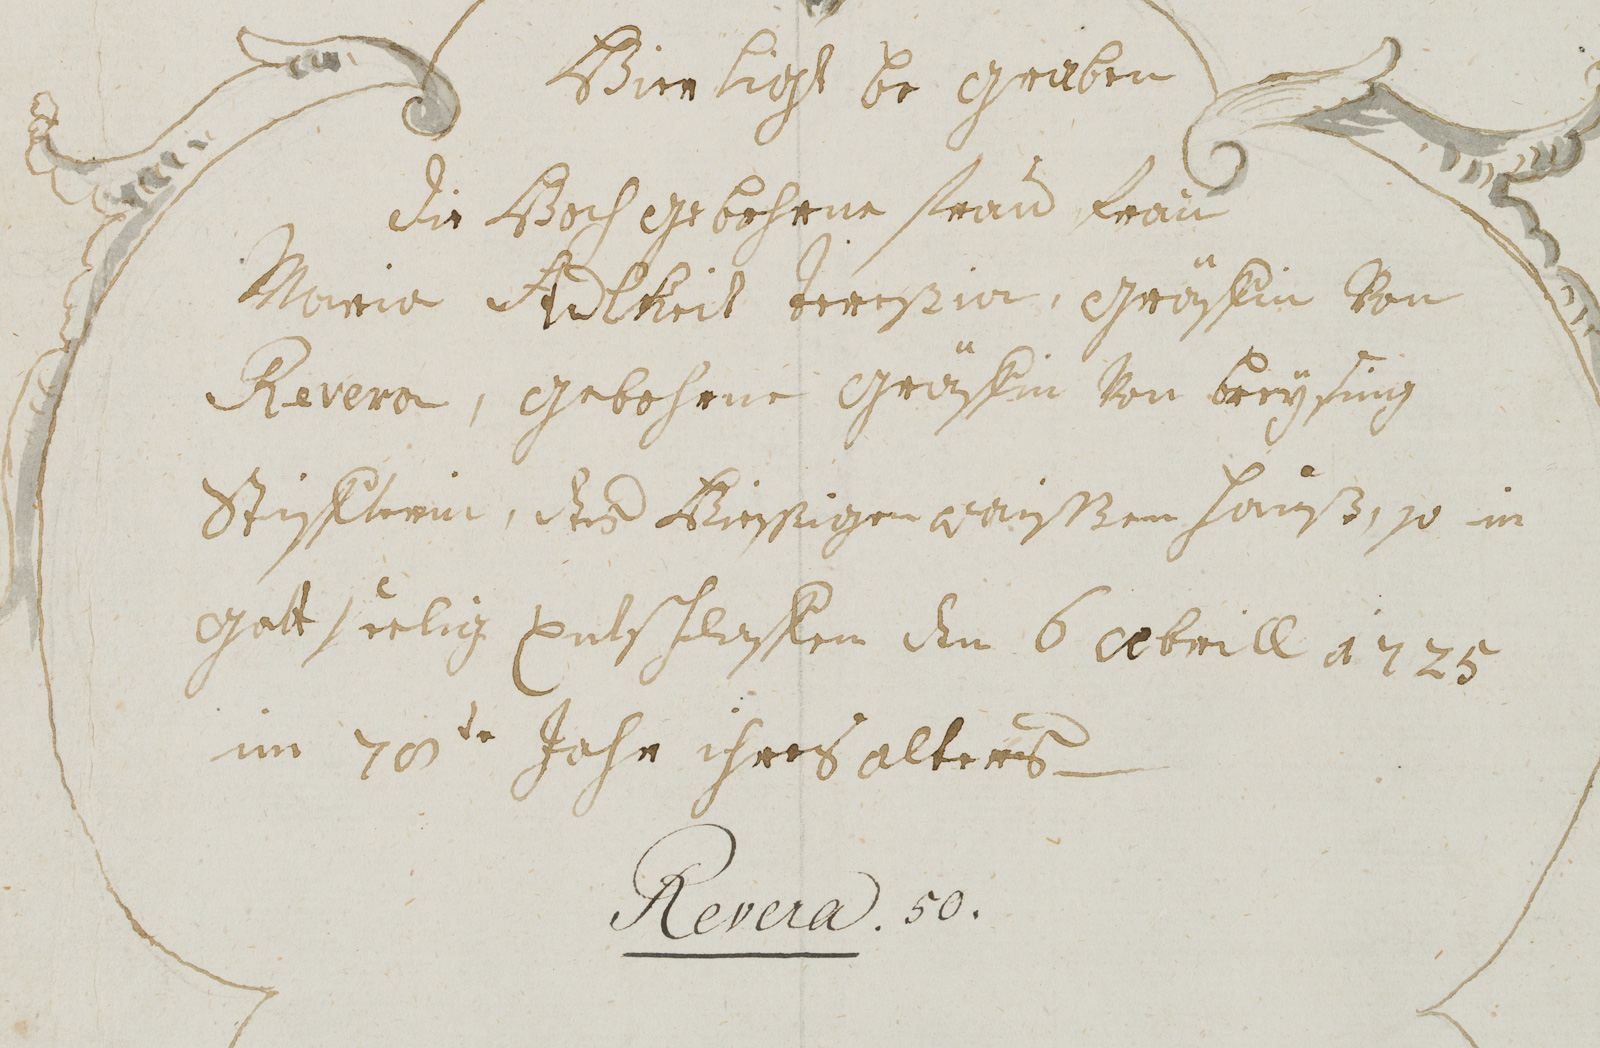 Hier ligt be graben
die Hoch gebohrne frau frau
Maria Adlheit teresia, gräffin Von
Revera, gebohrne gräffin Von breysing
Stiffterin, des Hiessigen waissen hauß, so in
gott seelig Entschlaffen den 6 abrill a 1725
im 78te Jahr ihres alters
Revera. 50.